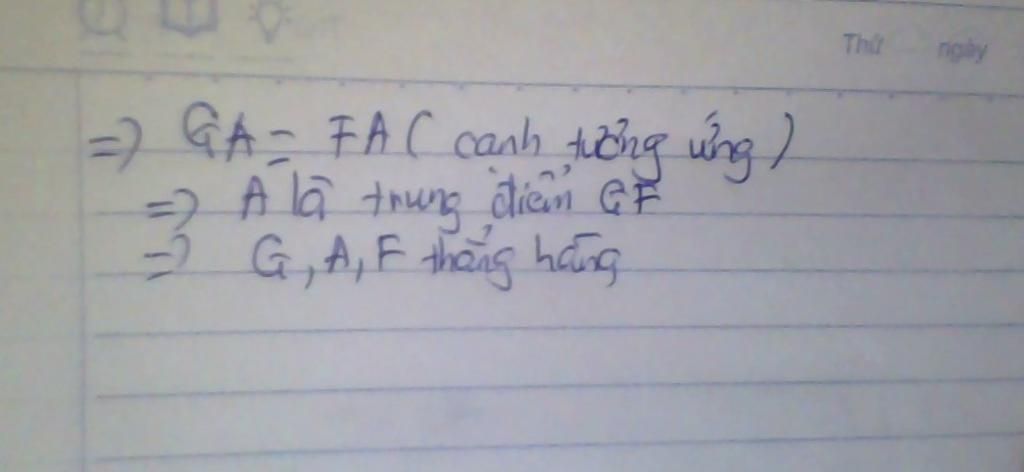 Thứ ngày
=> GA = FA ( cạnh tương ứng )
=> A là trung điểm GF
=> G, A, F thẳng hàng